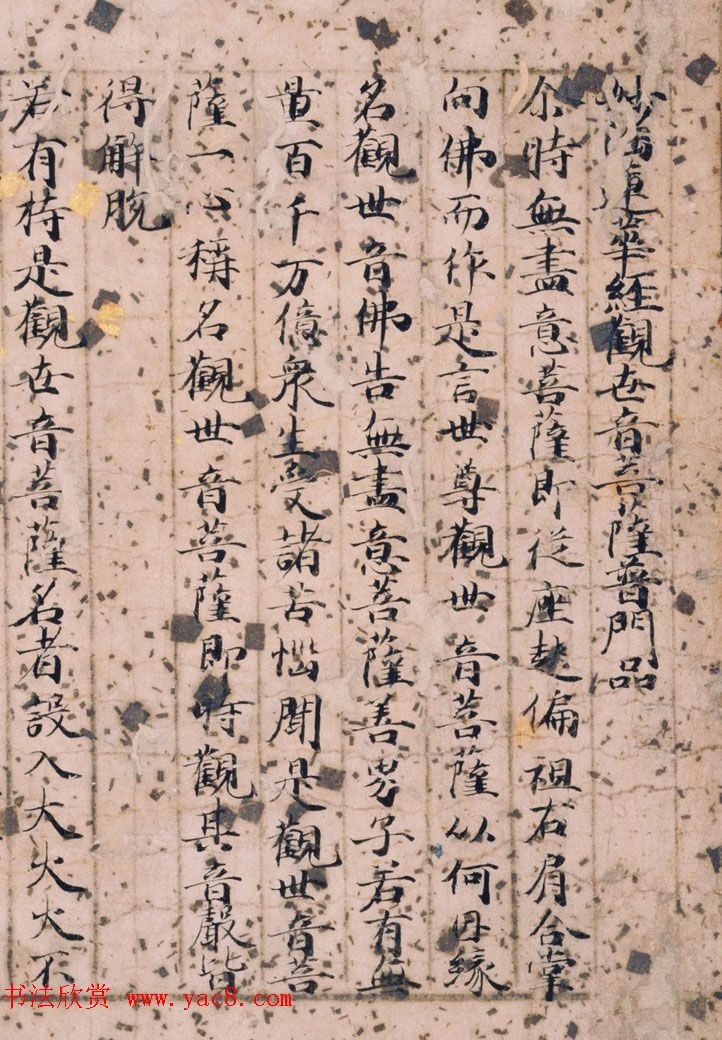 妙法蓮華經觀世音菩薩普門品
尒時無盡意菩薩即從座起偏袒右肩合掌
向佛而作是言世尊觀世音菩薩以何因緣
名觀世音佛告無盡意菩薩善男子若有無
量百千万億衆生受諸苦惱聞是觀世音菩
薩一心稱名觀世音菩薩即時觀其音聲皆
得解脫
若有持是觀世音菩薩名者設入大火火不
书法欣赏 www.yac8.com